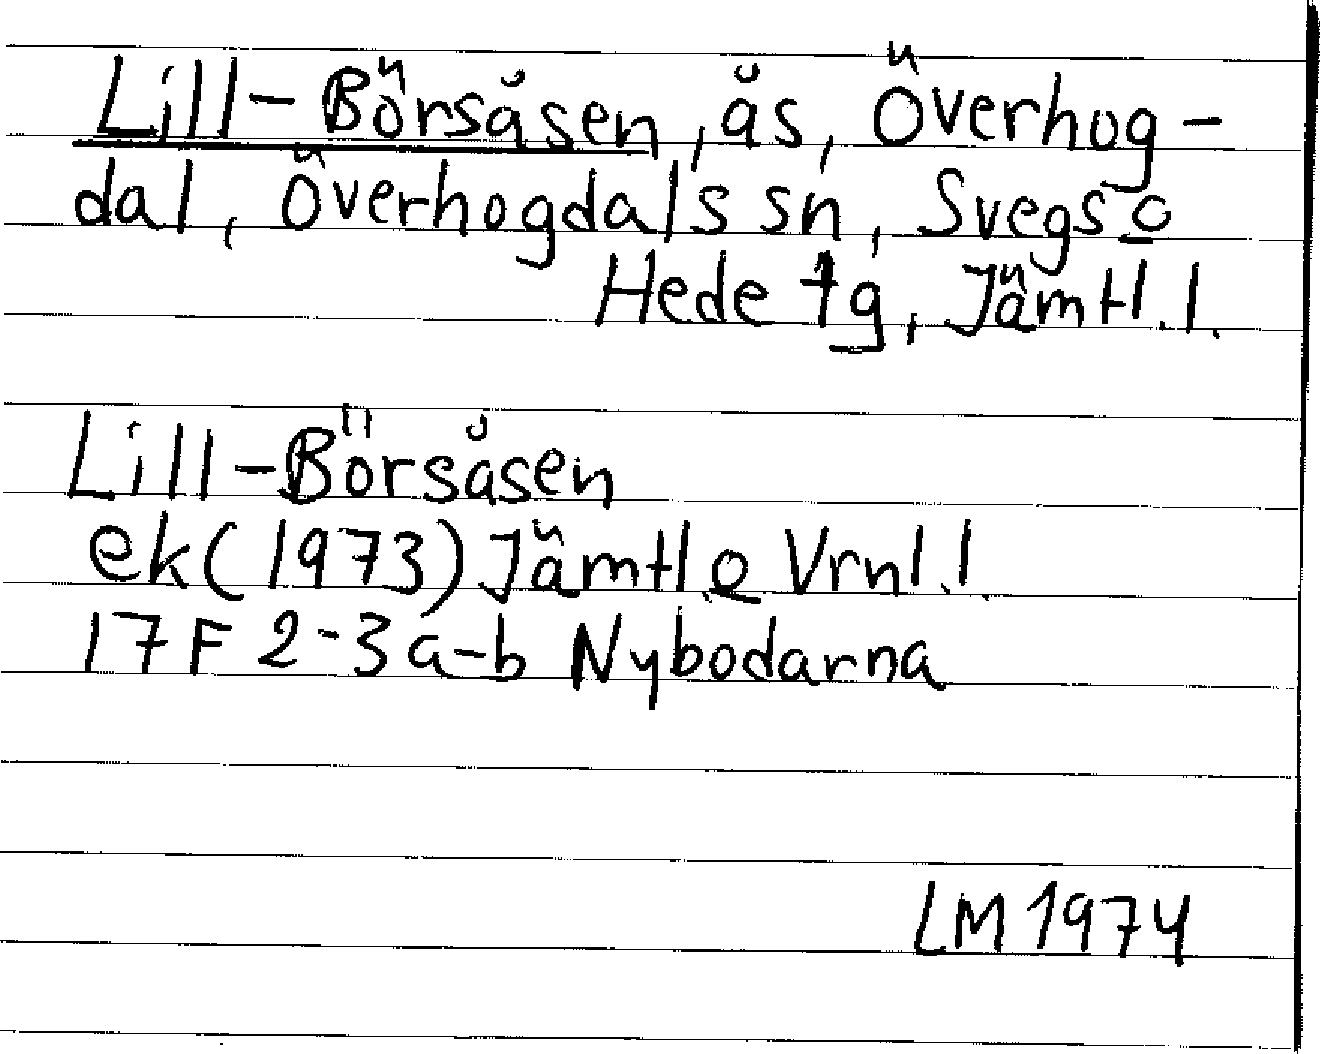 Lill-Börsåsen, ås, Överhog-
dal, Överhogdals sn, Svegs o
Hede tg, Jämtl. l.
Lill-Börsåsen
ek (1973) Jämtl. o Vrnl. l.
17F 2-3 a-b Nybodarna
LM 1974